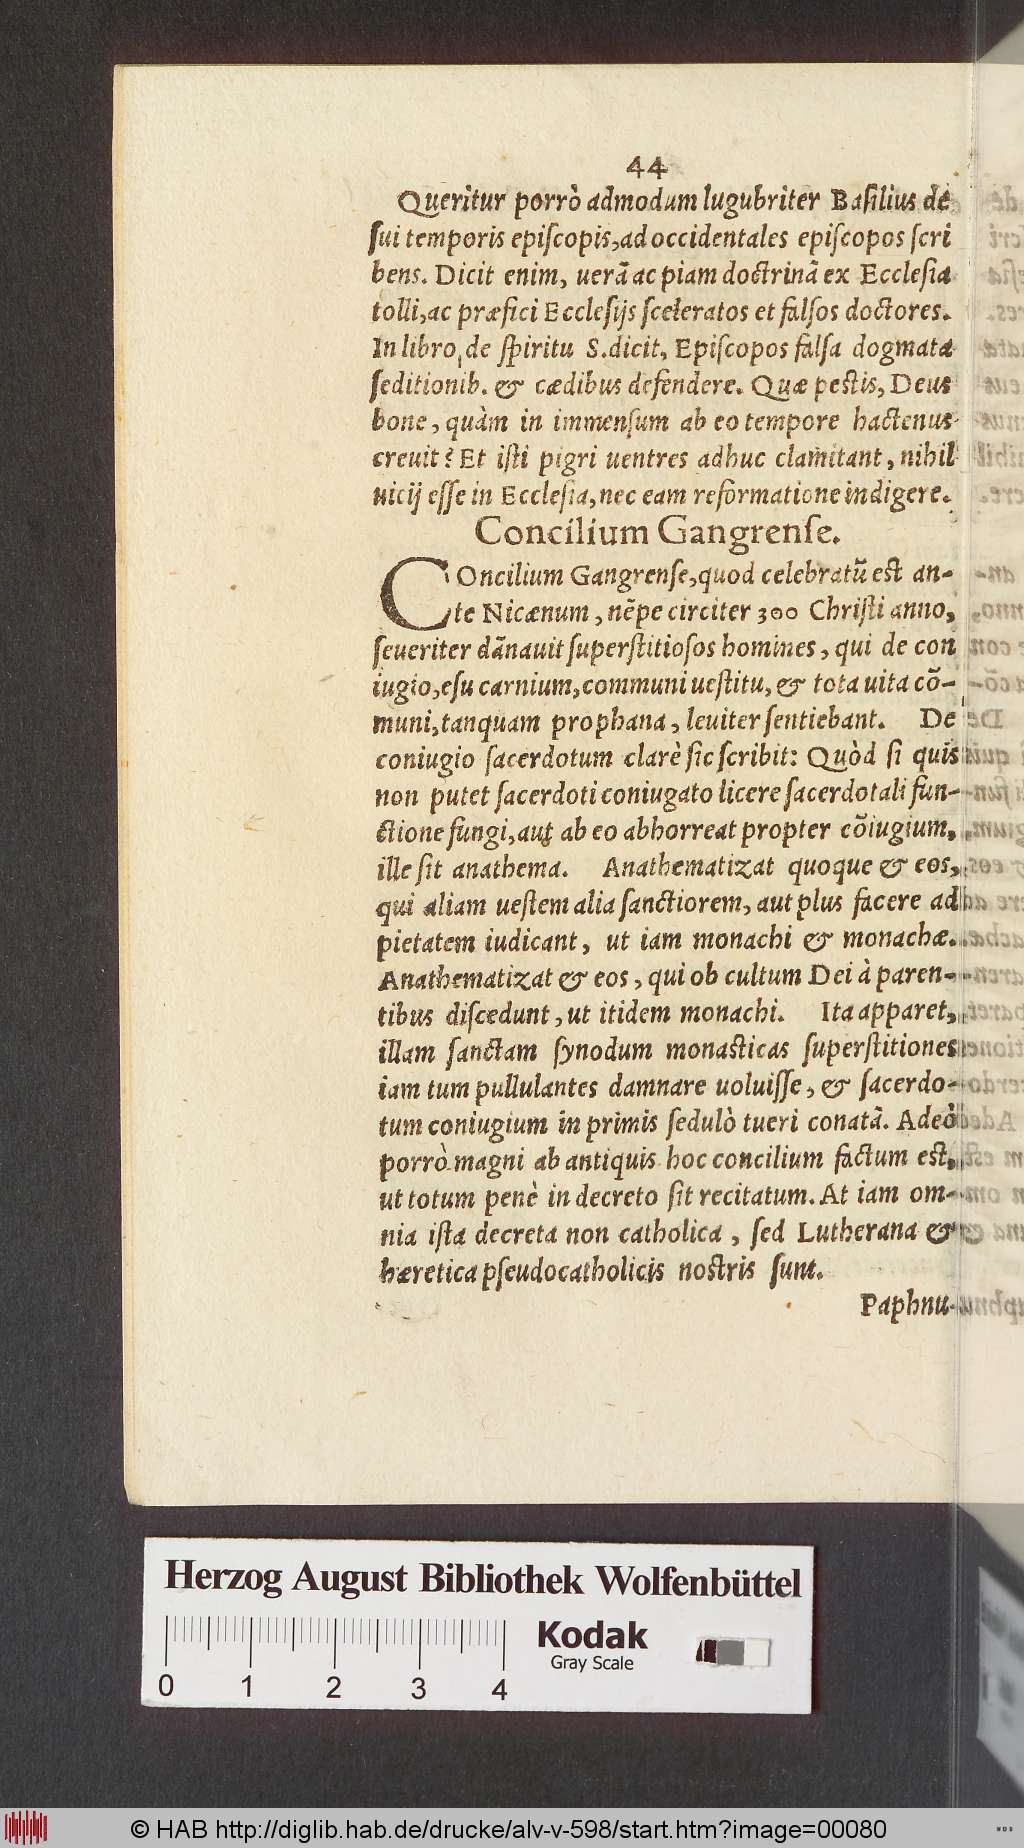 44
Queritur porrò admodum lugubriter Basilius de
ſui temporis epiſcopis,ad occidentales epiſcopos ſcri
bens. Dicit enim, uerã ac piam doctrinã ex Eccleſia
tolli,ac præfici Eccleſijs ſceleratos et falſos doctores.
In libro de ſpiritu S.dicit, Epiſcopos falſa dogmata
ſeditionib. & cædibus defendere. Quæ peſtis, Deus
bone, quàm in immenſum ab eo tempore hactenus
creuit? Et iſti pigri uentres adhuc clamitant, nihil
uicij eſſe in Eccleſia, nec eam reformatione indigere.
Concilium Gangrenſe.
COncilium Gangrenſe,quod celebratũ eſt an-
te Nicænum, nẽpe circiter 300 Chriſti anno,
ſeueriter dãnauit ſuperſtitioſos homines, qui de con
iugio,eſu carnium,communi ueſtitu, & tota uita cõ-
muni,tanquam prophana, leuiter ſentiebant. De
coniugio ſacerdotum clarè ſic ſcribit: Quòd ſi quis
non putet ſacerdoti coniugato licere ſacerdotali fun-
ctione fungi, aut ab eo abhorreat propter cõiugium,
ille ſit anathema. Anathematizat quoque & eos,
qui aliam ueſtem alia ſanctiorem, aut plus facere ad
pietatem iudicant, ut iam monachi & monachæ.
Anathematizat & eos, qui ob cultum Dei à paren-
tibus diſcedunt, ut itidem monachi. Ita apparet,
illam ſanctam ſynodum monaſticas ſuperſtitiones
iam tum pullulantes damnare uoluiſſe, & ſacerdo-
tum coniugium in primis ſedulò tueri conatã. Adeò
porrò magni ab antiquis hoc concilium factum eſt,
ut totum penè in decreto ſit recitatum. At iam om-
nia iſta decreta non catholica, ſed Lutherana &
hæretica pſeudocatholicis noſtris ſunt.
Paphnu-
Herzog August Bibliothek Wolfenbüttel
Kodak
Gray Scale
0 1 2 3 4
© HAB http://diglib.hab.de/drucke/alv-v-598/start.htm?image=00080